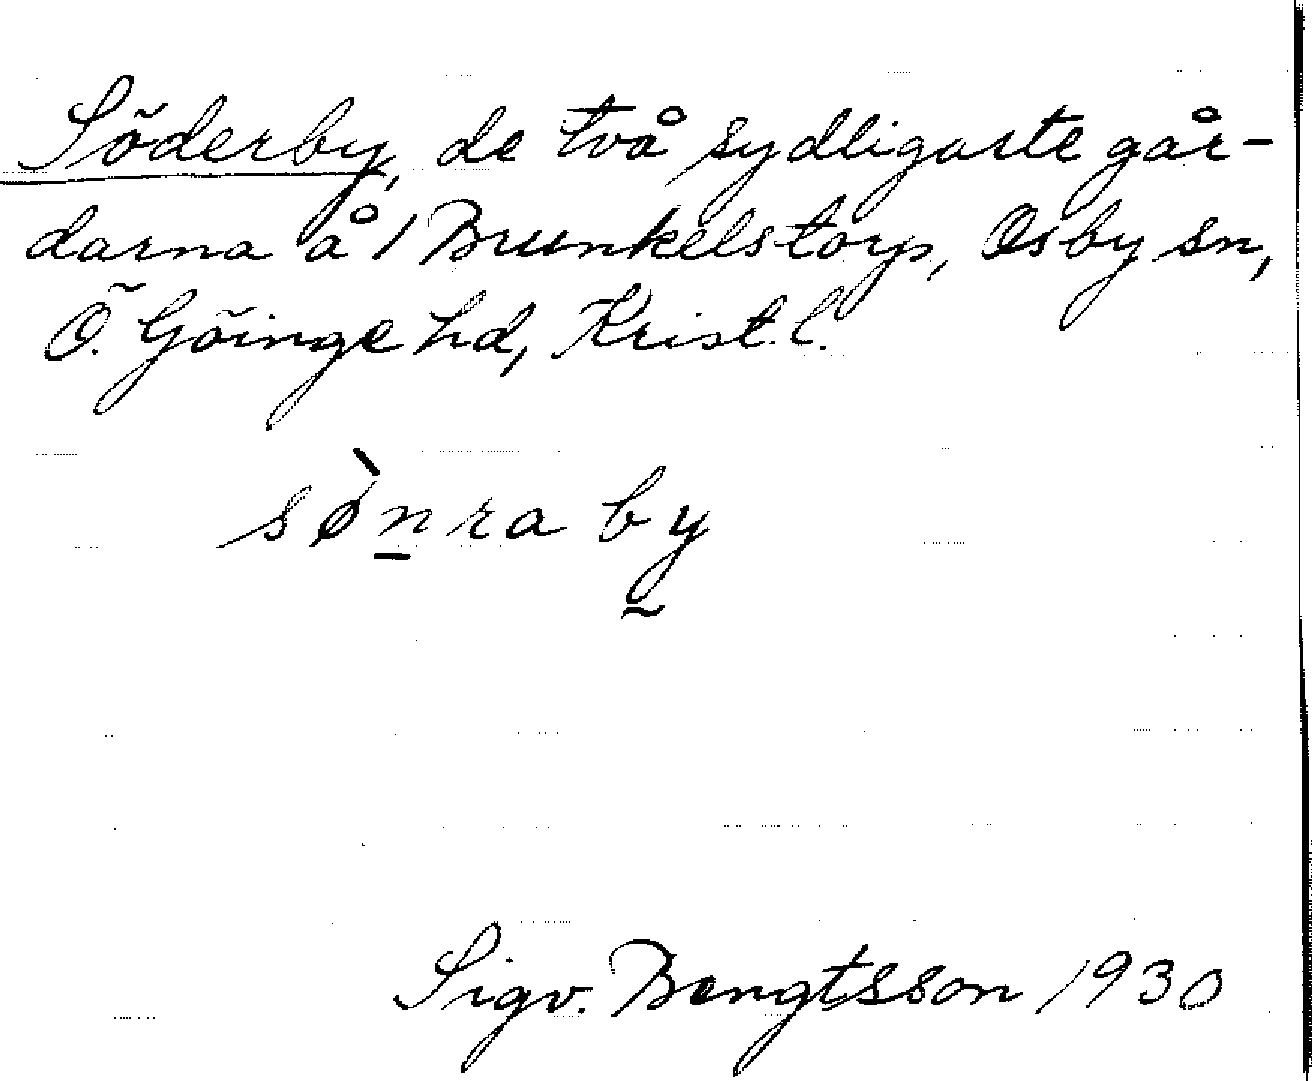 Söderby, de två sydligaste går-
darna å 1 Brunkelstorp, Osby sn,
Ö. Göinge hd, Krist. l.
sø̀n̲ra by̰
Sigv. Bengtsson 1930